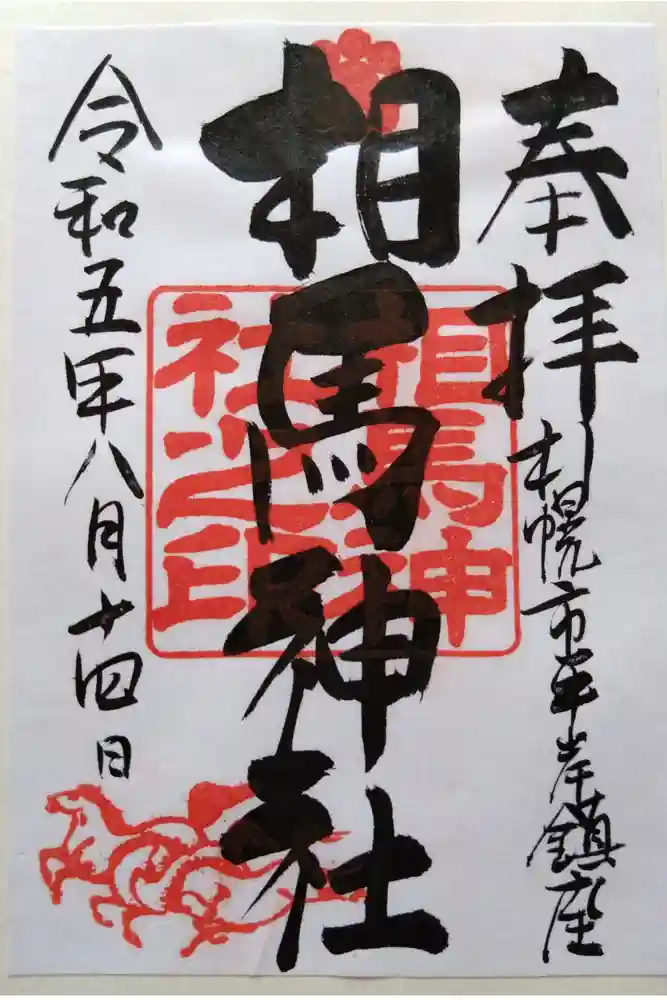 奉拝
札幌市平岸鎮座
相馬神社
相馬神
社之印
令和五年八月十四日